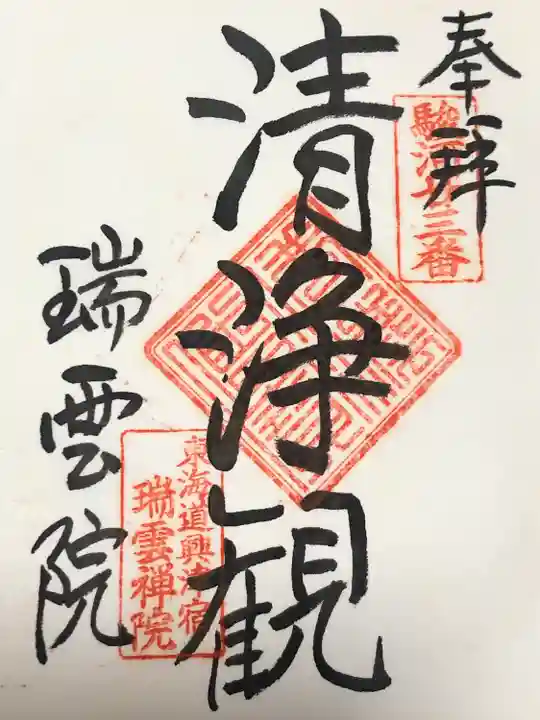 奉拝
駿河廿三番
清浄観
東海道興津宿
瑞雲禅院
瑞雲院